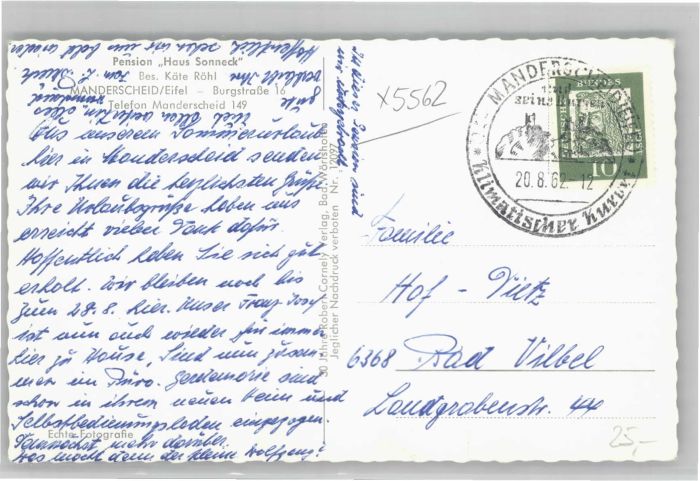 Pension „Haus Sonneck"
Bes. Käte Röhl
MANDERSCHEID/Eifel – Burgstraße 16
Telefon Manderscheid 149
Aus unserem Sommerurlaub
hier in Manderscheid senden
wir Ihnen die herzlichsten Grüße
Ihre Urlaubsgrüße haben uns
erreicht vielen Dank dafür.
Hoffentlich haben Sie sich gut
erholt. Wir bleiben noch bis
zum 28.8. hier. Unser Franz Josef
ist nun auch wieder für immer
hier zu Hause, sind nun zusam
men im Büro. Gerdemarie sind
schon in ihrem neuen Heim und
Selbstbedienungsladen eingezogen.
Demnächst mehr darüber.
Was macht denn der kleine Wolfgang?
Echte Fotografie
Hoffentlich sehen wir uns bald wieder
30 Jahre Robert Cornely Verlag, Bad Wörishofen
Jeglicher Nachdruck verboten Nr. 12097
x5562
MANDERSCHEID/EIFEL
und
seine Burgen
20.8.62-12
Klimatischer Kurort
BUNDES
10
Familie
Hof - Vietz
6368 Bad Vilbel
Landgrabenstr. 44
25,-